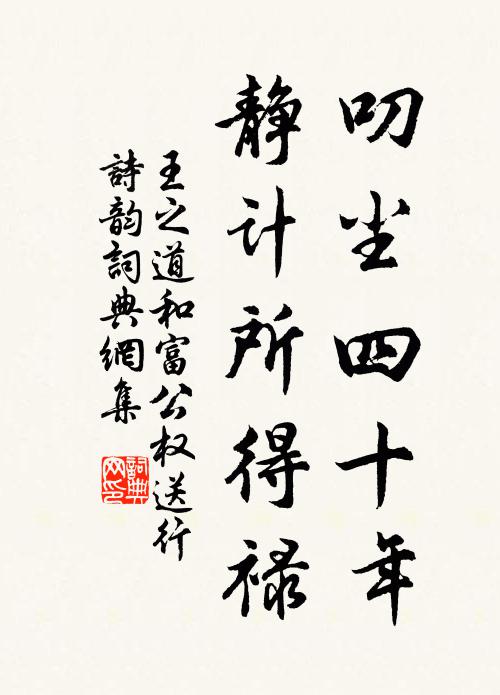 叨尘四十年
静计所得禄
王之道和富公权送行
詩韵詞典網集
詞典
网印